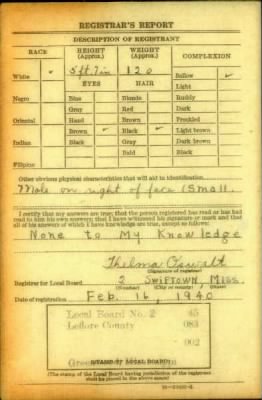 REGISTRAR'S REPORT
DESCRIPTION OF REGISTRANT
RACE HEIGHT (Approx.) WEIGHT (Approx.) COMPLEXION
White ✓ 5 ft. 7 in 120 Sallow ✓
EYES HAIR Light
Negro Blue Blonde Ruddy
Gray Red Dark
Oriental Hazel Brown Freckled
Brown ✓ Black ✓ Light brown
Indian Black Gray Dark brown
Bald Black
Filipino
Other obvious physical characteristics that will aid in identification
Mole on right of face (Small.
I certify that my answers are true; that the person registered has read or has had
read to him his own answers; that I have witnessed his signature or mark and that
all of his answers of which I have knowledge are true, except as follows:
None to My Knowledge
Thelma Oswalt
(Signature of registrar)
Registrar for Local Board 2 SWIFTOWN, Miss.
(Number) (City or county) (State)
Date of registration Feb. 16, 1940
Local Board No. 2 45
Leflore County 083
002
(STAMP OF LOCAL BOARD)
(The stamp of the Local Board having jurisdiction of the registrant
shall be placed in the above space.)